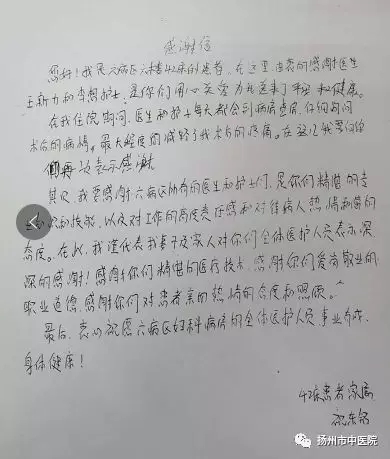 感谢信
您好!我是六病区六楼42床的患者,在这里由衷的感谢医生
王新力和李想护士,是你们用心关爱为我送来了平安和健康。
在我住院期间,医生和护士每天都会到病房查房,仔细询问
术后的病情,最大程度的减轻了我术后的疼痛。在这儿我要向你
们再次表示感谢
其次,我要感谢六病区所有的医生和护士们,是你们精湛的专
业知识和技术,以及对工作的高度责任感和对待病人热情和蔼的
态度。在此,我谨代表我妻子及家人对你们全体医护人员表示深
深的感谢!感谢你们精湛的医疗技术,感谢你们爱岗敬业的
职业道德,感谢你们对患者亲切热情的态度和照顾。
最后,衷心祝愿六病区妇科病房的全体医护人员事业有成,
身体健康!
42床患者家属
祝东
扬州市中医院